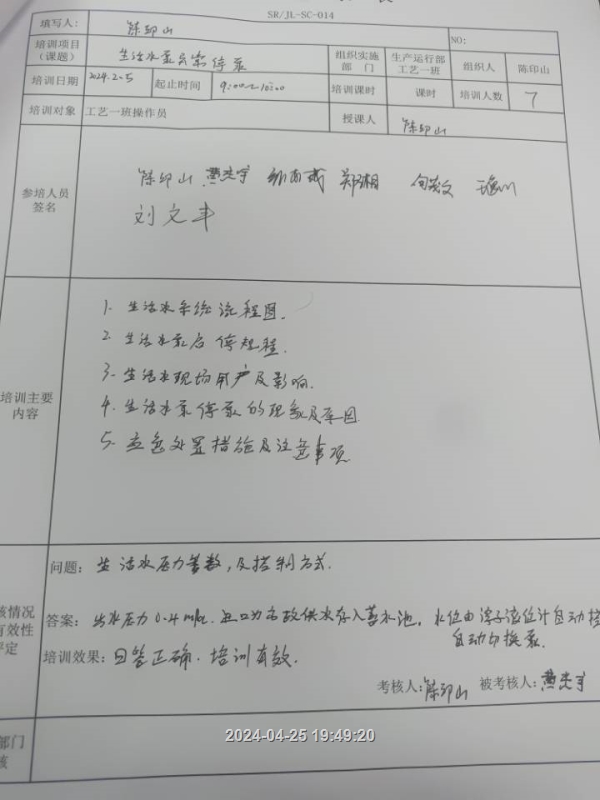 SR/JL-SC-014
填写人: 陈印山 NO:
培训项目（课题） 生活水泵异常停泵 组织实施部门 生产运行部工艺一班 组织人 陈印山
培训日期 2024.2.5 起止时间 9:00~10:00 培训课时 课时 培训人数 7
培训对象 工艺一班操作员 授课人 陈印山
参培人员签名 陈印山 郑湘
刘文丰
培训主要内容
1. 生活水系统流程图.
2. 生活水泵启停规程.
3. 生活水现场用户及影响.
4. 生活水泵停泵的现象及原因
5. 应急处置措施及注意事项
核情况
有效性
评定
问题: 生活水压力参数,及控制方式.
答案: 出水压力0.4mpa. 进口为市政供水存入蓄水池, 水位由浮子液位计自动控
自动切换泵.
培训效果: 回答正确. 培训有效.
考核人: 陈印山 被考核人:
部门
核
2024-04-25 19:49:20